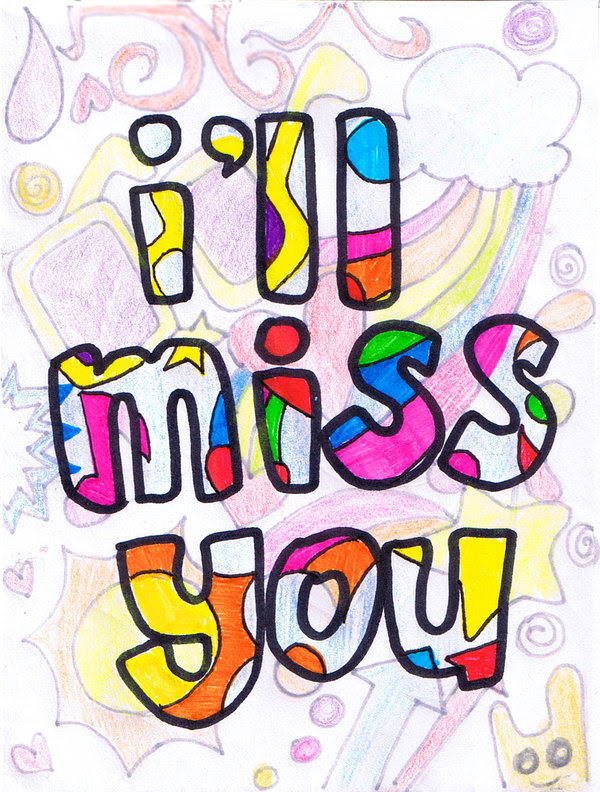 i'll
miss
you